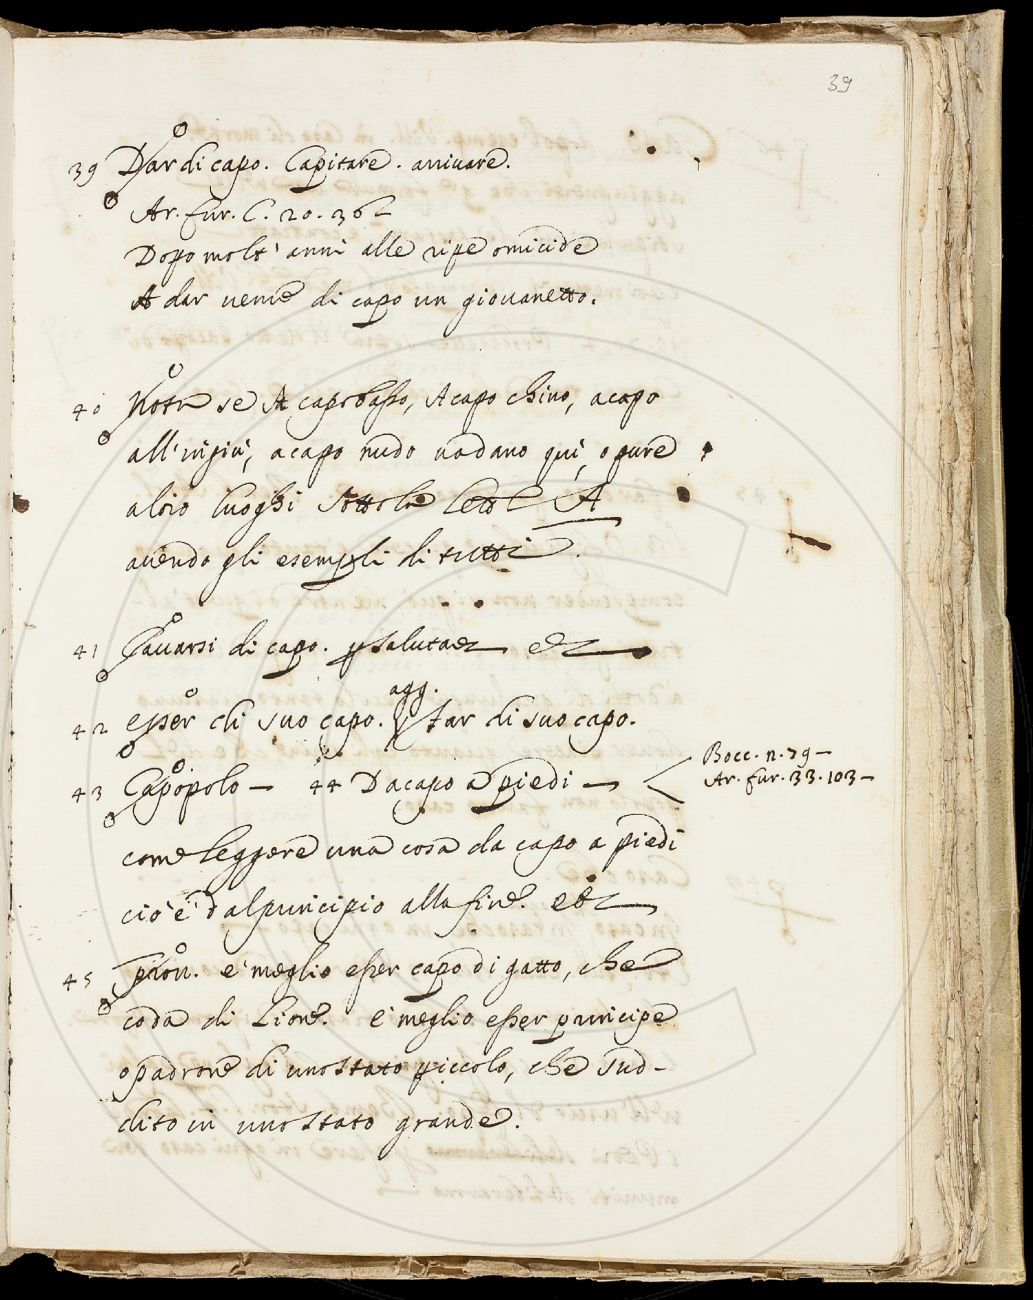 39
39 Dar di capo. Capitare. arriuare.
Ar. fur. C. 20. 36
Dopo molt' anni alle ripe omicide
A dar venne di capo un giouanetto.
40 Notisi se A capo basso, A capo chino, a capo
all'ingiù, a capo nudo uadano qui, o pure
altro luoghi sotto la lett. A
auendo gli esempli di tutti.
41 Cauarsi di capo. p salutare
agg.
42 esser di suo capo. far di suo capo.
43 Capopolo — 44 Da capo a piedi — Bocc. n. 79 —
Ar. fur. 33. 103 —
come leggere una cosa da capo a piedi
cio è dal principio alla fine.
45 prou. e' meglio esser capo di gatto, che
coda di Lione. e' meglio esser principe
o padrone di uno stato piccolo, che sud-
dito in uno stato grande.